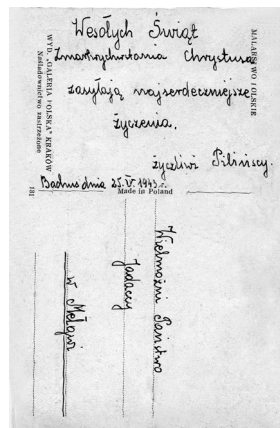 Wesołych Świąt
Zmartwychwstania Chrystusa
zasyłają najserdeczniejsze
życzenia.
życzliwi Pilińscy.
Bachus dnia 25.IV.1943.r.
Made in Poland
MALARSTWO POLSKIE
WYD. „GALERIA POLSKA” KRAKÓW
Naśladownictwo zastrzeżone
181
Wielmożni Państwo
Jadaccy
w Mełgwi